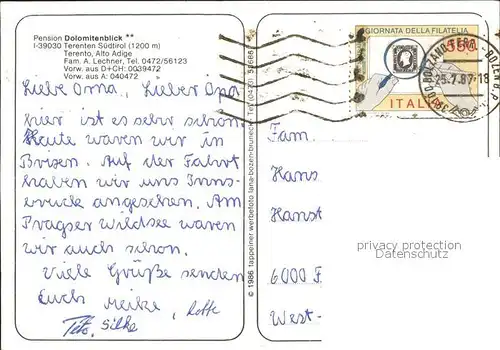 Pension Dolomitenblick **
I-39030 Terenten Südtirol (1200 m)
Terento, Alto Adige
Fam. A. Lechner, Tel. 0472/56123
Vorw. aus D+CH: 0039472
Vorw. aus A: 040472
Liebe Oma, Lieber Opa
hier ist es sehr schön.
Heute waren wir in
Brixen. Auf der Fahrt
haben wir uns Inns-
bruck angesehen. Am
Pragser Wildsee waren
wir auch schon.
Viele Grüße senden
Euch Meike, Lotte
Silke
© 1986 tappeiner werbefoto lana-bozen-bruneck Tel. 0473
GIORNATA DELLA FILATELIA
550
ITALIA
BOLZANO FERR. - BOZEN
25.7.87-18
Fam.
Hans
Hanst
6000 F
West-
privacy protection
Veikkos-archiv